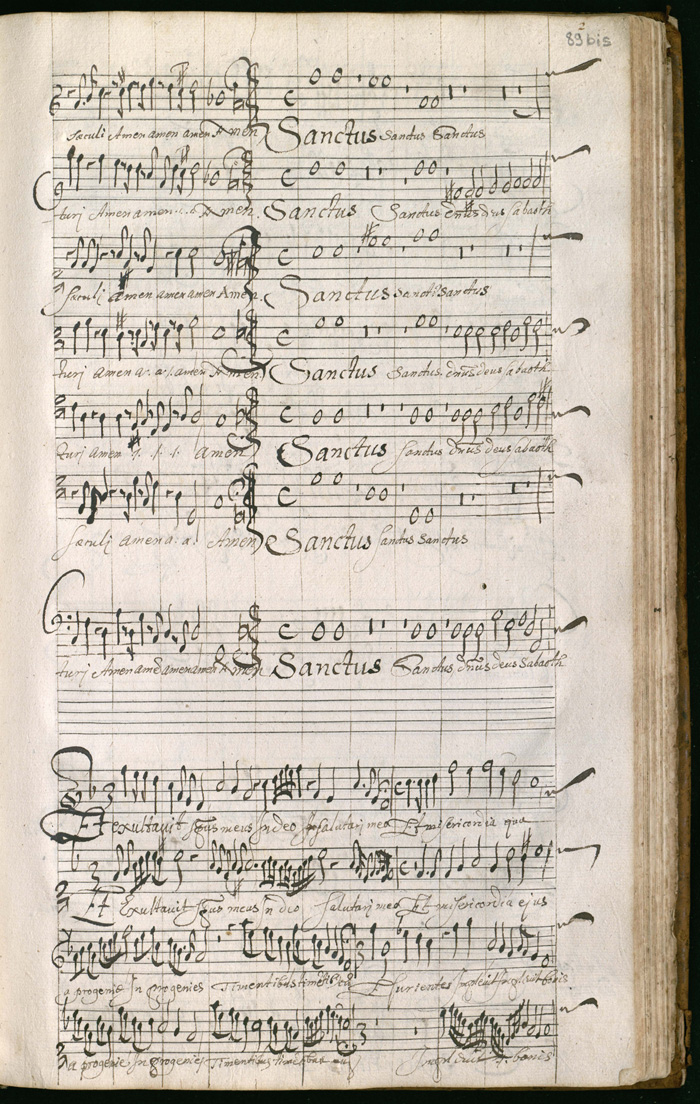 89 bis
sæculi Amen amen amen Amen Sanctus Sanctus Sanctus
turi Amen amen .i. .i. Amen. Sanctus Sanctus dnus deus sabaoth
sæculi amen amen amen Amen. Sanctus Sanctus Sanctus
turi amen a. a. amen Amen Sanctus Sanctus dnus deus sabaoth
turi amen .i. .i. .i. amen Sanctus sanctus dnus deus sabaoth
sæculi amen a: a: Amen Sanctus sanctus sanctus
turi Amen amen amen amen Amen Sanctus Sanctus dnus deus sabaoth
Et exultavit spus meus in deo salutari meo Et misericordia ejus
Et Exultavit spus meus in deo salutari meo Et misericordia ejus
a progenie in progenies timentibus Esurientes implevit bonis
a progenie in progenies timentibus timentibus bonis